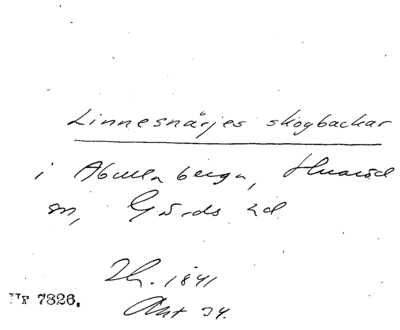 Linnesnärjes skogbackar
i Abullaberga, Huaröd
sn, Gärds hd.
Th. 1841
Nr 7826.
Akt 34.